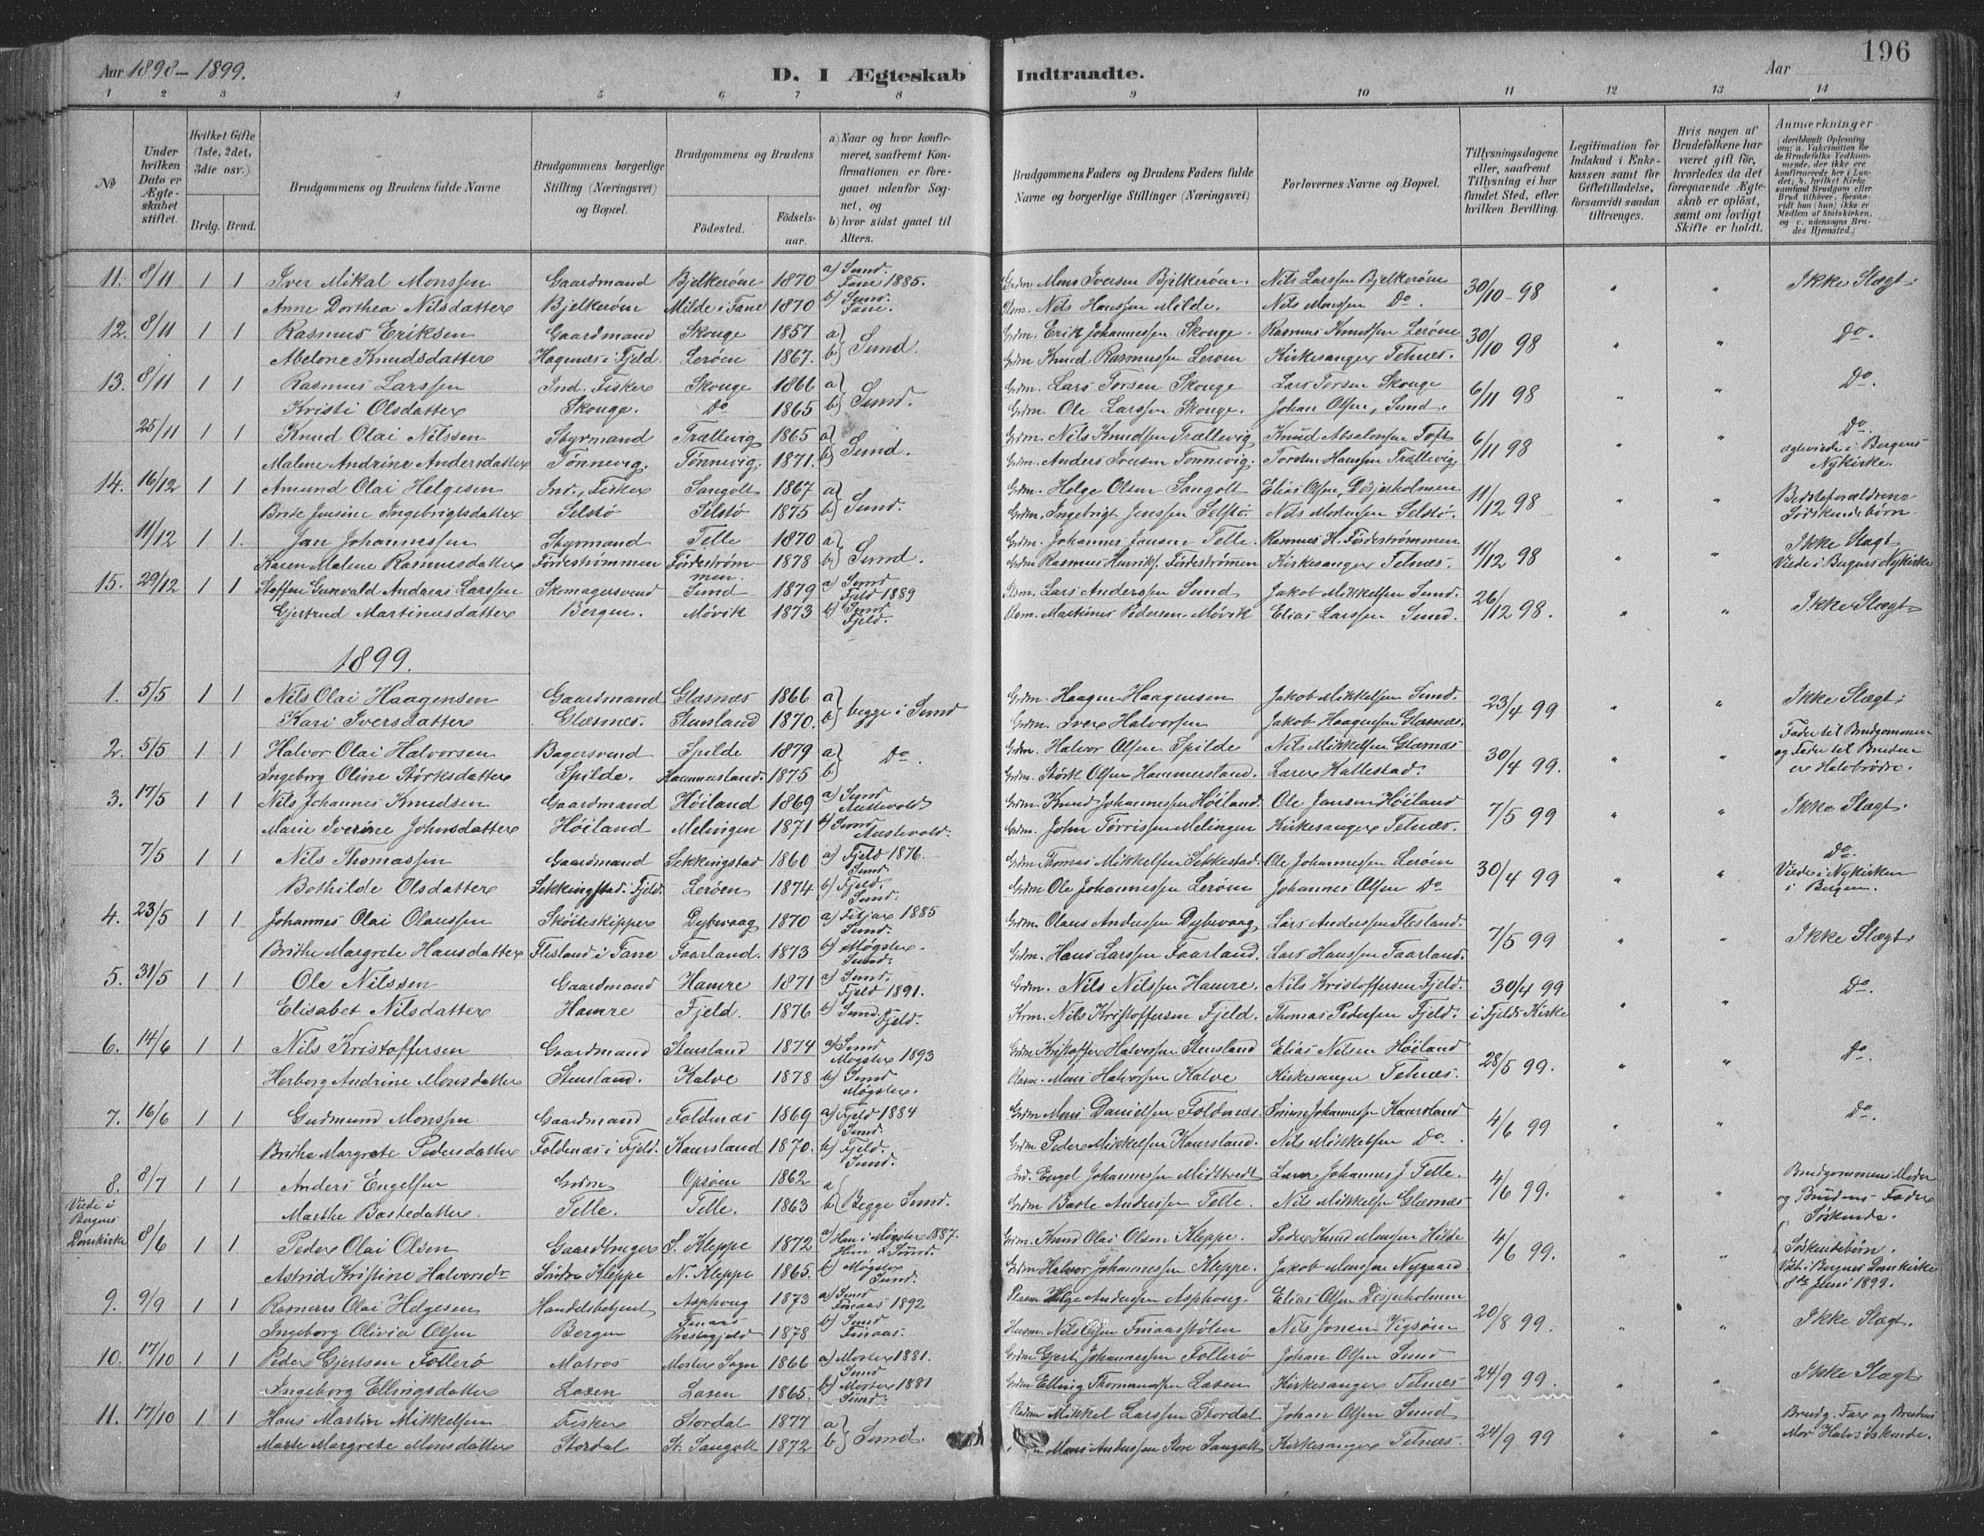 Aar 1898-1899.
D. I Ægteskab Indtraadte.
Aar
196
1 2 3 4 5 6 7 8 9 10 11 12 13 14
No
Under hvilken Dato er Ægteskabet stiftet.
Hvilket Gifte (1ste, 2det, 3die osv.)
Brdg. Brud.
Brudgommens og Brudens fulde Navne
Brudgommens borgerlige Stilling (Næringsvei) og Bopæl.
Brudgommens og Brudens
Fødested.
Fødselsaar.
a) Naar og hvor konfirmeret, saafremt Konfirmationen er foregaaet udenfor Sognet, og
b) hvor sidst gaaet til Alters.
Brudgommens Faders og Brudens Faders fulde Navne og borgerlige Stillinger (Næringsvei)
Forlovernes Navne og Bopæl.
Tillysningsdagene eller, saafremt Tillysning ei har fundet Sted, efter hvilken Bevilling.
Legitimation for Indskud i Enkekassen samt for Giftetilladelse, forsaavidt saadan tiltrænges.
Hvis nogen af Brudefolkene har været gift før, hvorledes da det foregaaende Ægteskab er opløst, samt om lovligt Skifte er holdt.
Anmærkninger
11. 8/11 1 1 Iver Mikal Monssen Gaardmand Bjelkerøen 1870 a) Sund. Fane 1885. Grdm. Mons Iversen Bjelkerøen. Nils Larssen Bjelkerøen 30/10-98 " " Ikke Slægt.
Anne Dorthea Nilsdatter Bjelkerøen Milde i Fane 1870 b) Sund. Fane. Nils Hanssen Milde. Nils Monssen Do.
12. 8/11 1 1 Rasmus Eriksen Gaardmand Skouge 1857 a) Sund. Grdm. Erik Johannessen Skouge. Rasmus Knudssen Lerøen 30/10 98 " " Do.
Abelone Knudsdatter Hagenæs i Fjeld. Lerøen 1867. b) Grdm. Knud Rasmussen Lerøen Kirkesanger Telnæs.
13. 8/11 1 1 Rasmus Larssen Ind. Fisker Skouge 1866 a) Sund. Grdm. Lars Torsen Skouge Lars Torsen Skouge 6/11 98 " " Do.
Kristi Olsdatter Skouge. Do 1865 b) Grdm. Ole Larssen Skouge. Johan Olsen, Sund.
25/11 1 1 Knud Olai Nilssen Styrmand Trællevig 1865 a) Sund. Grdm. Nils Knudssen Trællevig Knud Absalonsen Toft 6/11 98 " Do.
Malene Andrine Andersdatter Tønnevig. Tønnevig. 1871. b) Grdm. Anders Iversen Tonnevig. Torsten Hanssen Trællevig Bergens Nykirke.
14. 16/12 1 1 Amund Olai Helgesen Ind., Fisker Sangolt 1867 a) Sund. Grdm. Helge Olsen Sangolt Elias Olsen, Dysjeholmen 11/12 98 " " Bedsteforældrene Sødskendebørn
Brite Jensine Ingebrigtsdatter Selstø Selstø 1875 b) Grdm. Ingebrigt Jenssen Selstø Nils Mortensen Selstø.
11/12 1 1. Jan Johannessen Styrmand Telle 1870 a) Sund. Grdm. Johannes Jansen Telle. Rasmus H. Førdestrømmen 11/12 98 " " Ikke Slægt
Karen Malene Rasmusdatter Førdestrømmen Førdestrømmen. 1878 b) Grdm Rasmus Henriks. Førdestrømen Kirkesanger Telnæs. Viede i Bergens Nykirke
15. 29/12 1 1 Steffen Gunvald Anders Larssen Skomagersvend Sund 1879 a) Sund Fjeld 1889 Lars Anderssen Sund Jakob Mikkelsen Sund. 26/12 98. " " Ikke Slægt
Gjertrud Martinusdatter Bergen. Møvik 1873 b) Sund Fjeld. Martinus Pedersen Møvik Elias Larssen Sund.
1899.
1. 5/5 1 1 Nils Olai Haagensen Gaardmand Glæsnæs 1866 a) begge i Sund Grdm. Haagen Haagensen Jakob Mikkelsen Sund. 23/4 99 " " Ikke Slægt
Kari Iversdatter Glæsnæs. Stensland 1870. b) Grdm. Iver Halvorssen Jakob Haagensen Glæsnæs.
2. 5/5 1 1 Halvor Olai Halvorsen Bagersvend Spilde 1879 a) Do. Grdm. Halvor Olsen Spilde Nils Mikkelsen Glæsnæs 30/4 99. " " Fader til Brudgommen
Ingeborg Oline Størksdatter Spilde. Hammersland. 1875 b) Grdm. Størk Olsen Hammersland. Lærer Hallestad. og Fader til Bruden ere Halvbrødre.
3. 17/5 1 1 Nils Johannes Knudsen Gaardmand Høiland 1869 a) Sund Austevold Grdm. Knud Johannessen Høiland. Ole Jansen Høiland 7/5 99 " " Ikke Slægt.
Marie Iverine Johnsdatter Høiland Melingen 1871 b) Sund Austevold. Grdm. John Tørrissen Melingen Kirkesanger Telnæs.
7/5 1 1 Nils Thomassen Gaardmand Sekkingstad 1860 a) Fjeld 1876. Sund Grdm. Thomas Mikkelsen Sekkestad. Ole Johannessen Lerøen 30/4 99 " " Do. Viede i Nykirken i Bergen.
Bothilde Olsdatter Sekkingstad i Fjeld. Lerøen 1874 b) Fjeld. Sund. Grdm. Ole Johannessen Lerøen Johannes Olsen Do
4. 23/5 1 1 Johannes Olai Olaussen Skøiteskipper Dybevaag 1870 a) Fitjar 1885 Sund. Grdm. Olaus Anderssen Dybevaag Lars Anderssen Flesland. 7/5 99 " " Ikke Slægt.
Brithe Margrete Hansdatter Flesland i Fane Faarland. 1873 b) Møgster. Sund. Grdm. Hans Larssen Faarland. Lars Hanssen Faarland.
5. 31/5 1 1 Ole Nilssen Gaardmand Hamre 1871 a) Sund. Fjeld 1891. Grdm. Nils Nilssen Hamre. Nils Kristoffersen Fjeld. 30/4 99 " " Do.
Elisabet Nilsdatter Hamre Fjeld. 1876 b) Sund. Fjeld. Krm. Nils Kristoffersen Fjeld. Thomas Pedersen Fjeld. i Fjelds Kirke
6. 14/6 1 1 Nils Kristoffersen Gaardmand Stensland 1874 a) Sund Møgster 1893 Grdm Kristoffer Halvorssen Stensland Elias Nilsen Høiland 28/5 99. " " Do.
Herborg Andrine Monsdatter Stensland. Kalve 1878 b) Sund Møgster. Mons Halvorssen Kalve Kirkesanger Telnæs.
7. 16/6 1 1 Gudmund Monssen Gaardmand Foldnæs 1869 a) Fjeld 1884 Sund. Grdm Mons Danielsen Foldnæs. Johannessen Kaursland 4/6 99 " " Do.
Brithe Margrete Pedersdatter Foldenæs i Fjeld. Kaursland 1870. b) Fjeld. Sund. Grdm. Peder Mikkelsen Kaursland. Nils Mikkelsen Do.
8. 8/7 1 1 Anders Engelsen Grdm Opsøen 1862 a) Begge Sund. Ind. Engel Johannessen Midttvedt Lærer Johannes J. Telle. 4/6 99. " " Brudgommens Moder
Marthe Baatedatter. Telle. Telle. 1863 b) Grdm. Baate Anderssen Telle. Nils Mikkelsen Glæsnæs og Brudens Fader Søskende.
Viede i Bergens Domkirke 8/6 1 1 Peder Olai Olsen Gaardbruger S. Kleppe 1872 a) Han i Møgster 1887. Hun i Sund. Grdm. Knud Olai Olsen Kleppe. Peder Knud Monssen Hilde 4/6 99. " " Søskendebørn.
Astrid Kristine Halvorsdr Søndre Kleppe N. Kleppe 1865. b) Møgster Sund. Grdm Halvor Johannessen Kleppe. Jakob Monssen Nygaard Bergens Domkirke 8de Juni 1899.
9. 9/9 1 1 Rasmus Olai Helgesen Handelsbetjent Asphoug 1873 a) Sund Finaas 1892 Helge Anderssen Asphoug. Elias Olsen Dysjeholmen 20/8 99. " " Ikke Slægt.
Ingeborg Olivia Olsen Bergen Finaas Prestegjeld 1878 b) Sund Finaas. Husm. Nils Olsen Finaasstølen Nils Jonsen Vigsøen
10. 17/10 1 1 Peder Gjertsen Follerø Matros Moster Sogn 1866 a) Moster 1881. Sund Grdm Gjert Johannessen Follerø Johan Olsen Sund 24/9 99. " " Ikke Slægt
Ingeborg Ellingsdatter Lasen Lasen 1865. b) Moster 1881 Sund. Grdm Elling Thomassen Lasen Kirkesanger Telnæs
11. 17/10 1 1 Hans Martin Mikkelsen Fisker Stordal 1877 a) Sund. Mikkel Larssen Stordal Johan Olsen Sund 24/9 99 " " Brudg. Far og Brudens
Marte Margrete Monsdatter Stordal St. Sangolt 1872 b) Mons Anderssen Store Sangolt Kirkesanger Telnæs. Mor Halvsøskende.